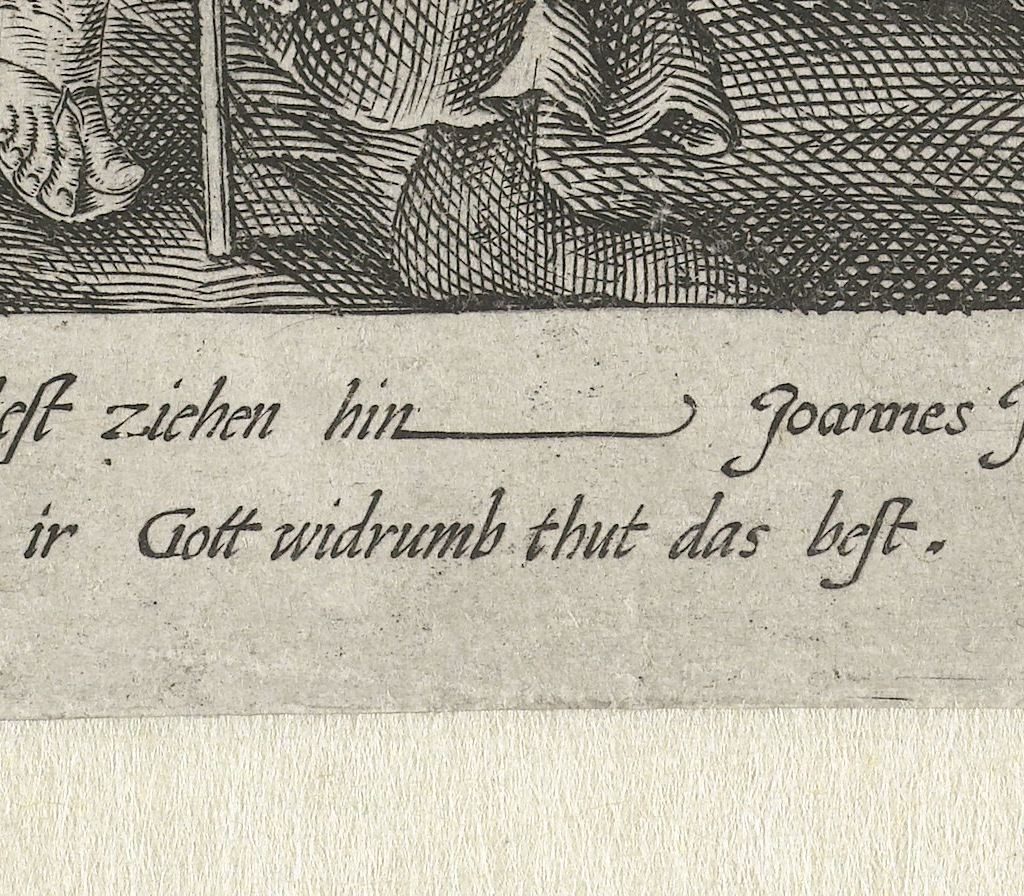 ziehen hin Joannes
ir Gott widrumb thut das beſt.